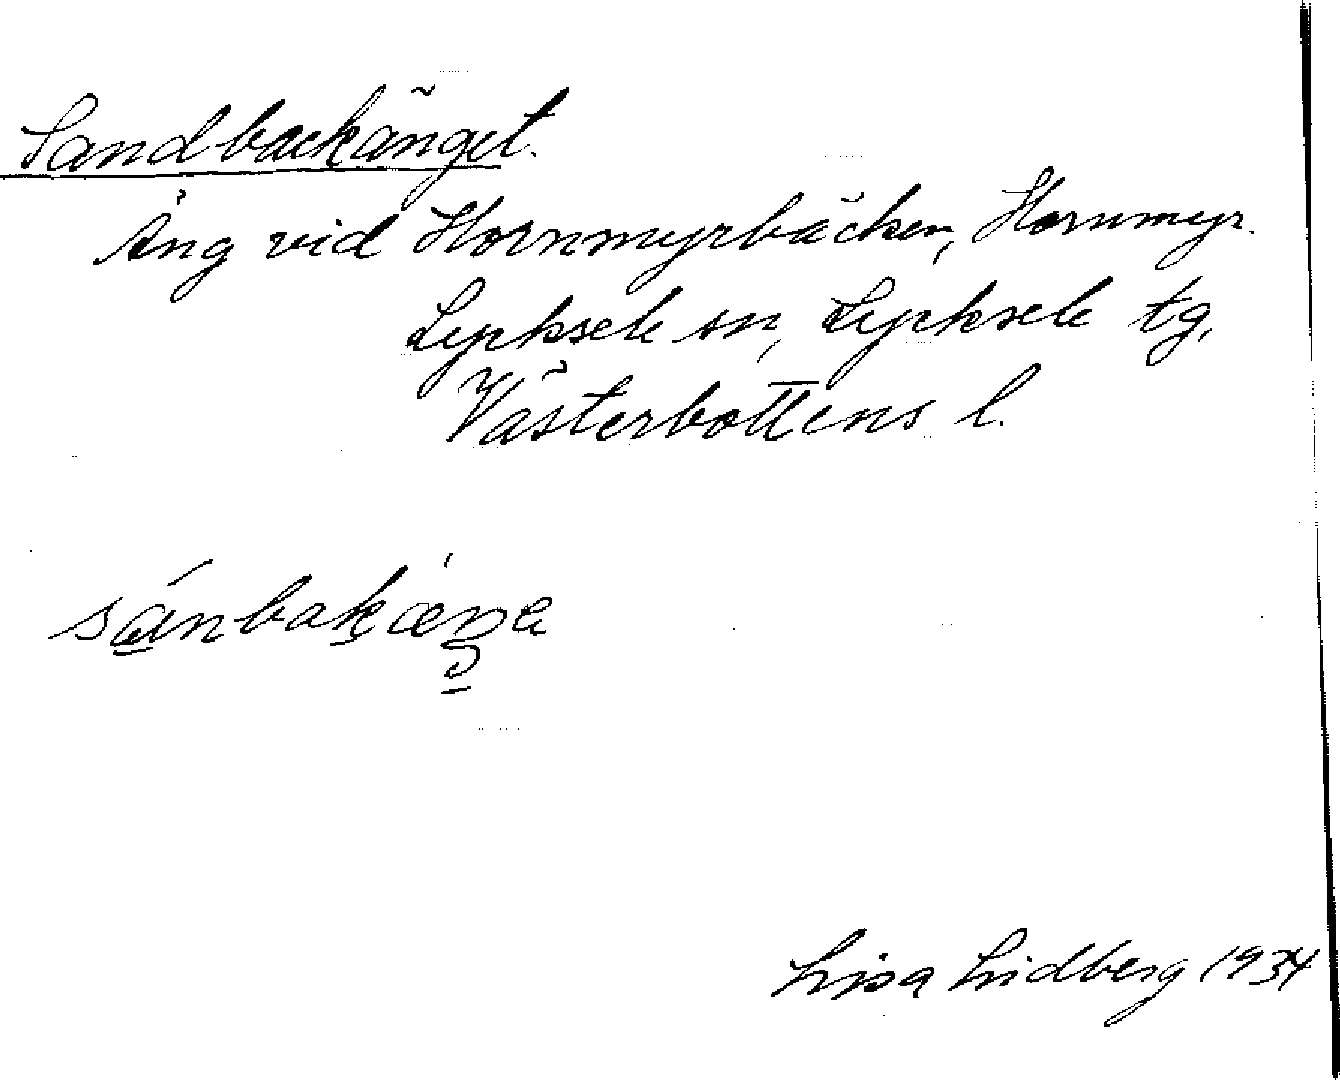 Sandbackänget.
Äng vid Hornmyrbäcken, Hornmyr.
Lycksele sn, Lycksele tg,
Västerbottens l.
Lisa Lidberg 1934